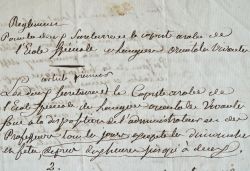 Règlement
Pour les deux Secrétaires et le copiste arabe de
l'École Spéciale de Langues orientales vivantes
article premier
Les deux Secrétaires et le Copiste arabe de
l'École Spéciale de Langues orientales vivantes
sont à la disposition de l'administrateur et des
Professeurs tous les jours excepté le dimanche
et fêtes depuis dix heures jusqu'à deux